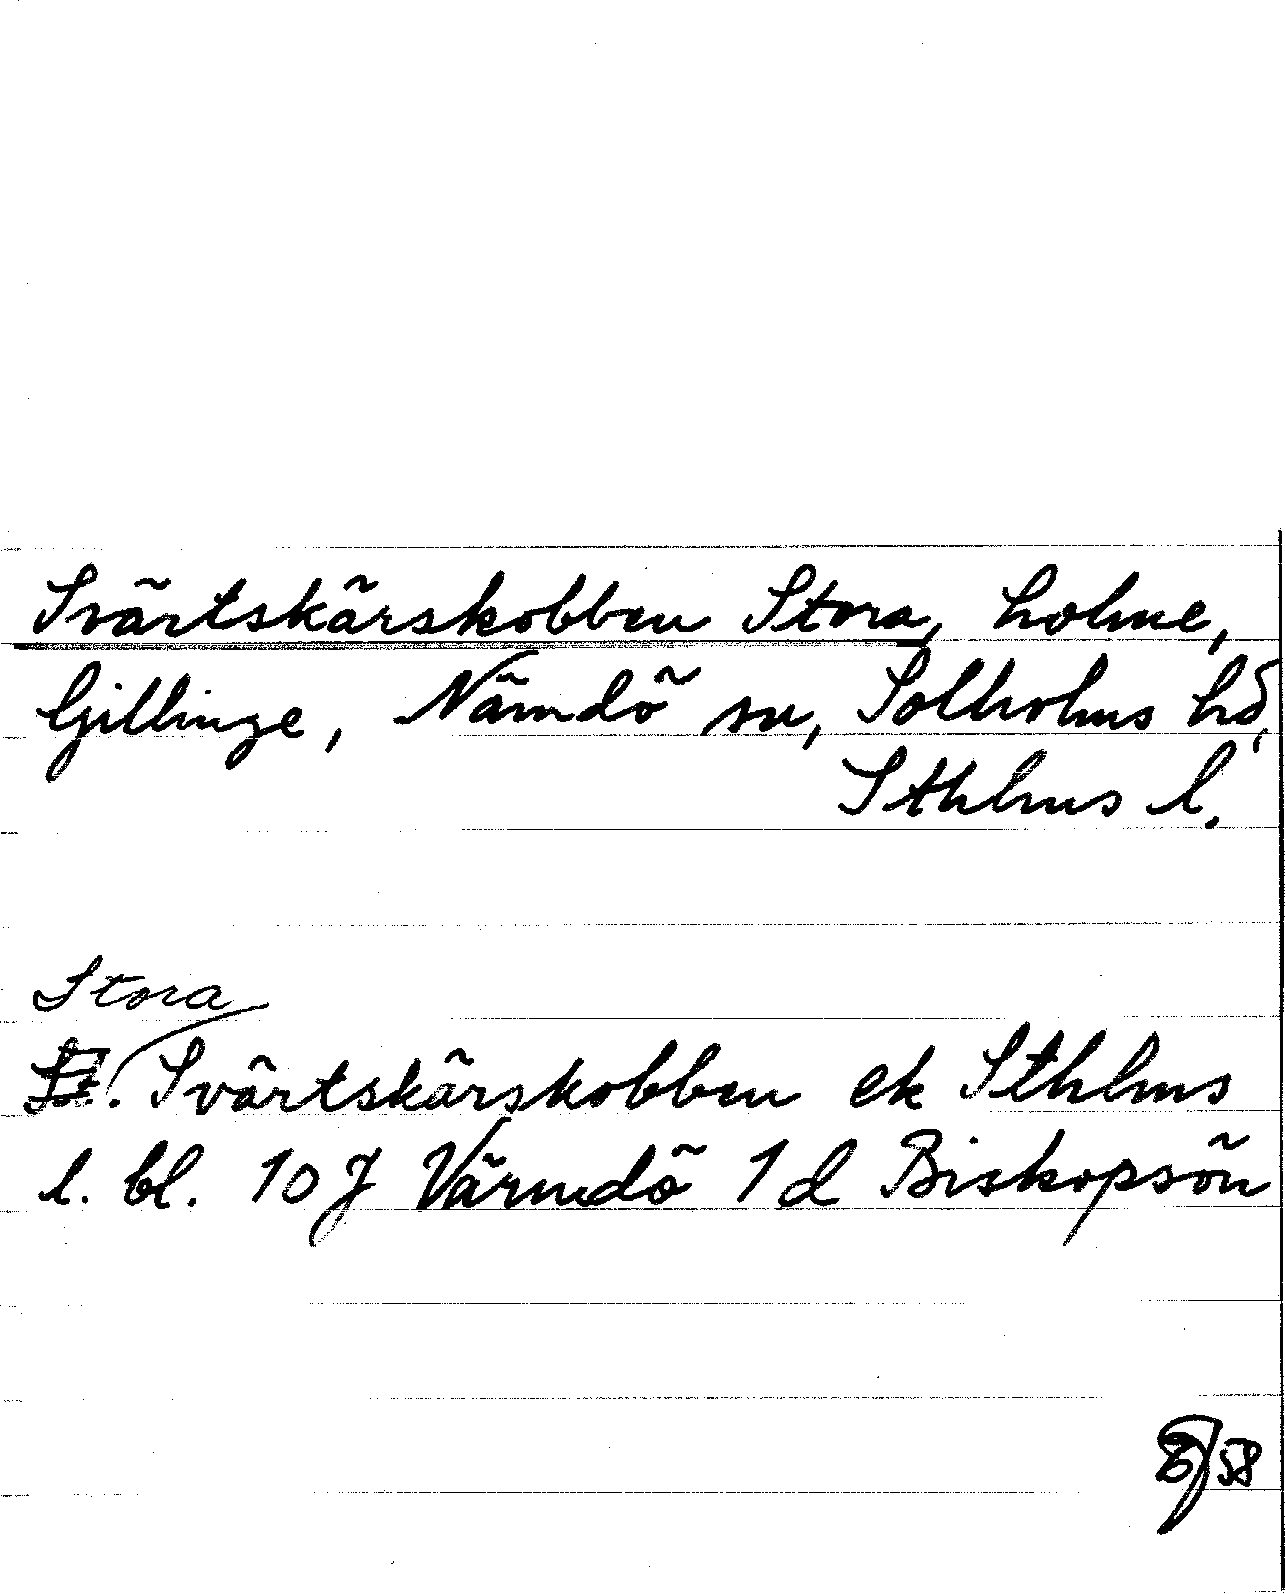 Svärtskärskobben Stora, holme,
Gillinge, Nämdö sn, Sollholms hd,
Sthlms l.
Stora
St. Svärtskärskobben ek Sthlms
l. bl. 10J Värmdö 1d Biskopsön
58